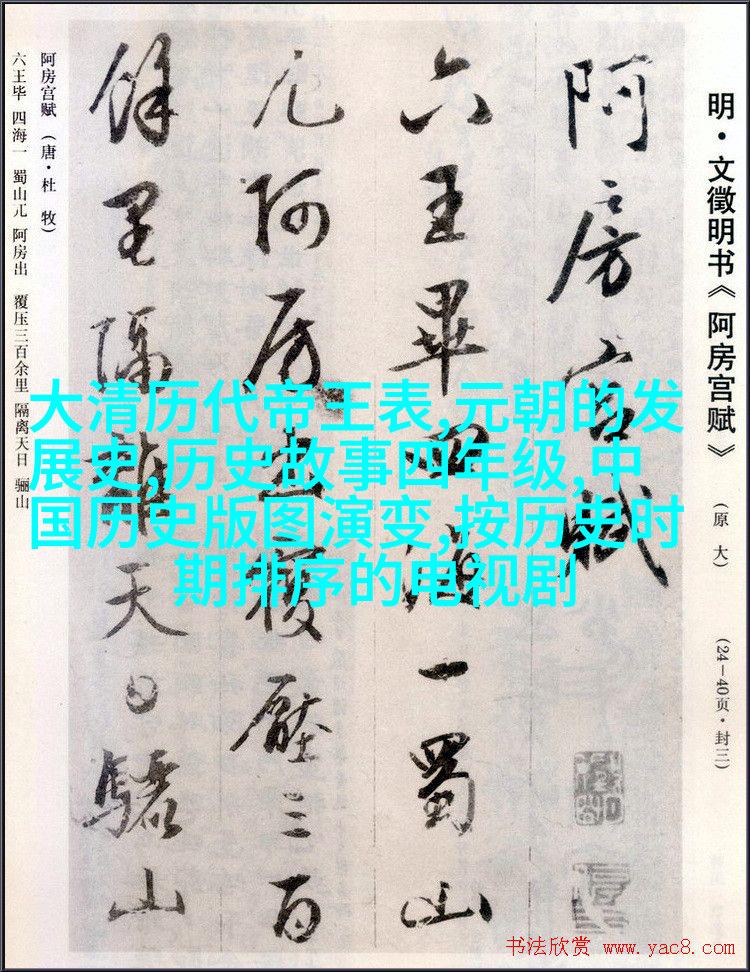 明·文徵明书《阿房宫赋》（原大）（24—40页·封三）
阿房宫賦
六王畢四海一蜀山
兀阿房出覆壓三百
餘里隔離天日驪山
阿房宫赋（唐·杜 牧）
六王毕 四海一 蜀山兀 阿房出 覆压三百余里 隔离天日 骊山
大清历代帝王表,元朝的发
展史,历史故事四年级,中
国历史版图演变,按历史时
期排序的电视剧
书法欣赏 www.yac8.com